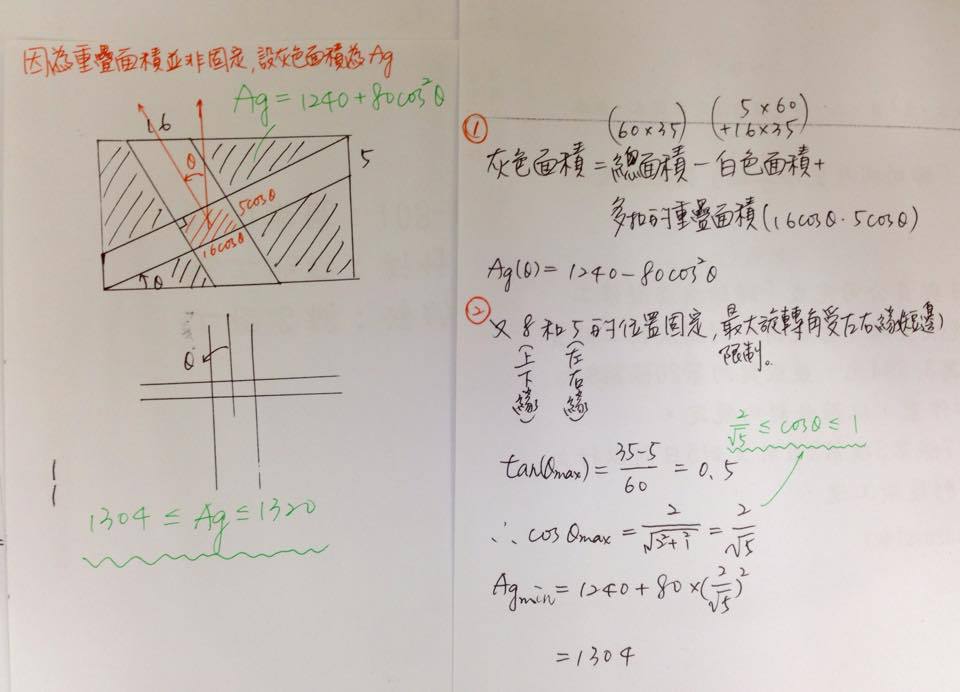 因為重疊面積並非固定,設灰色面積為Ag
Ag = 1240 + 80cos²θ
16
θ
5
5cosθ
16cosθ
θ
θ
1304 ≤ Ag ≤ 1320
① (60×35) (5×60
+16×35)
灰色面積 = 總面積 - 白色面積 +
多扣的重疊面積(16cosθ·5cosθ)
Ag(θ) = 1240 - 80cos²θ
② 又 8 和 5 的位置固定,最大旋轉角受左右緣(短邊)
限制。
(上下緣) (左右緣)
2/√5 ≤ cosθ ≤ 1
tan(θmax) = (35-5)/60 = 0.5
∴ cosθmax = 2/√(2²+1²) = 2/√5
Agmin = 1240 + 80×(2/√5)²
= 1304